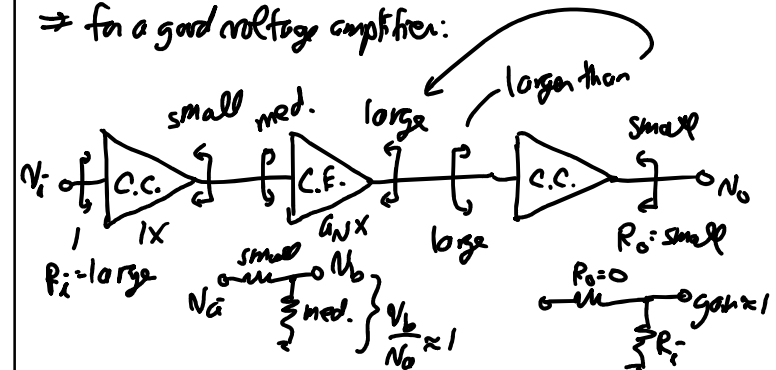 ⇒ for a good voltage amplifier:
small med. large larger than small
Vi C.C. C.E. C.C. Vo
1X aᵥX large Ro: small
Ri=large
small Vb Ro=0
Va med. Vb/Va ≈ 1 gain≈1
Ri